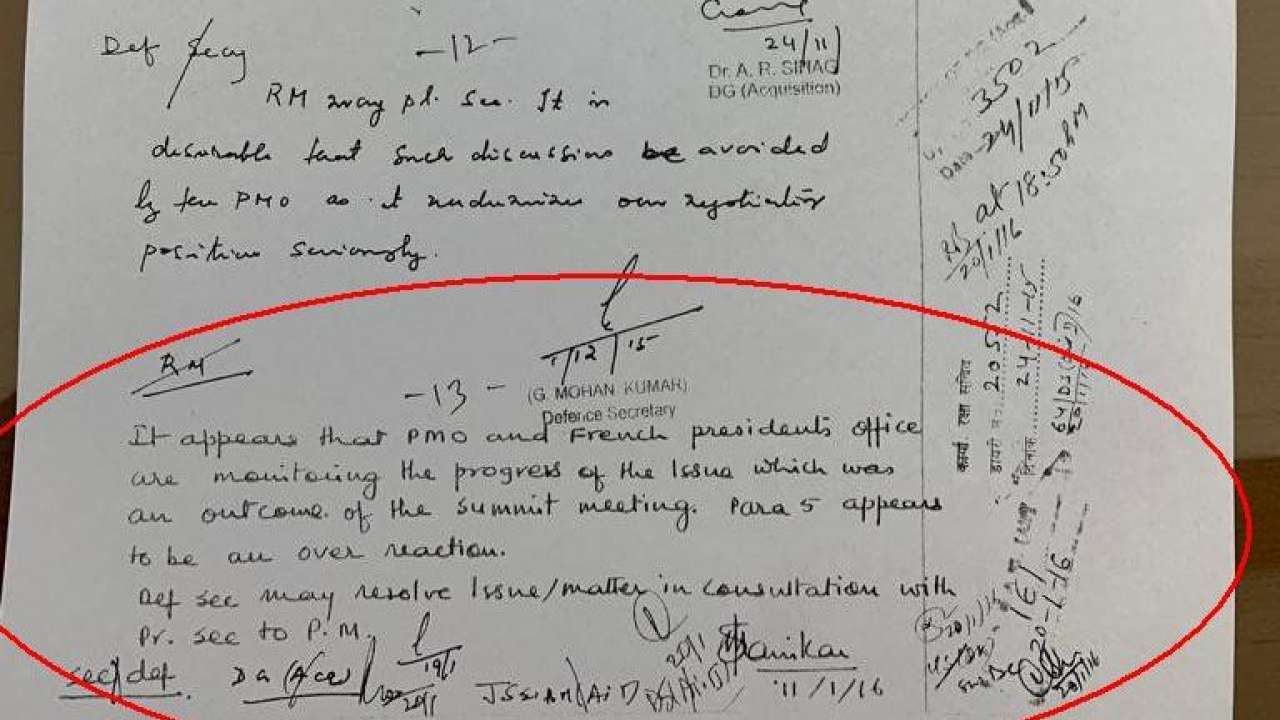 Def Secy
-12-
24/11
Dr. A. R. SIHAG
DG (Acquisition)
RM may pl. see. It is
desirable that such discussions be avoided
by the PMO as it undermines our negotiating
position seriously.
1/12/15
(G. MOHAN KUMAR)
Defence Secretary
RM
-13-
It appears that PMO and French president's office
are monitoring the progress of the Issue which was
an outcome of the summit meeting. Para 5 appears
to be an over reaction.
Def sec may resolve Issue/matter in consultation with
Pr. sec to P.M.
Parrikar
11/1/16
sec/def
DG (Acq)
19/1
20/1
JS&AM (Air)
20/1
3502
Date 24/11/15
at 18:50 PM
20/1/16
कार्या रक्षा सचिव
डायरी न. 20552
दिनांक 24-11-15
20-1-16
20/1/16
20/1/16